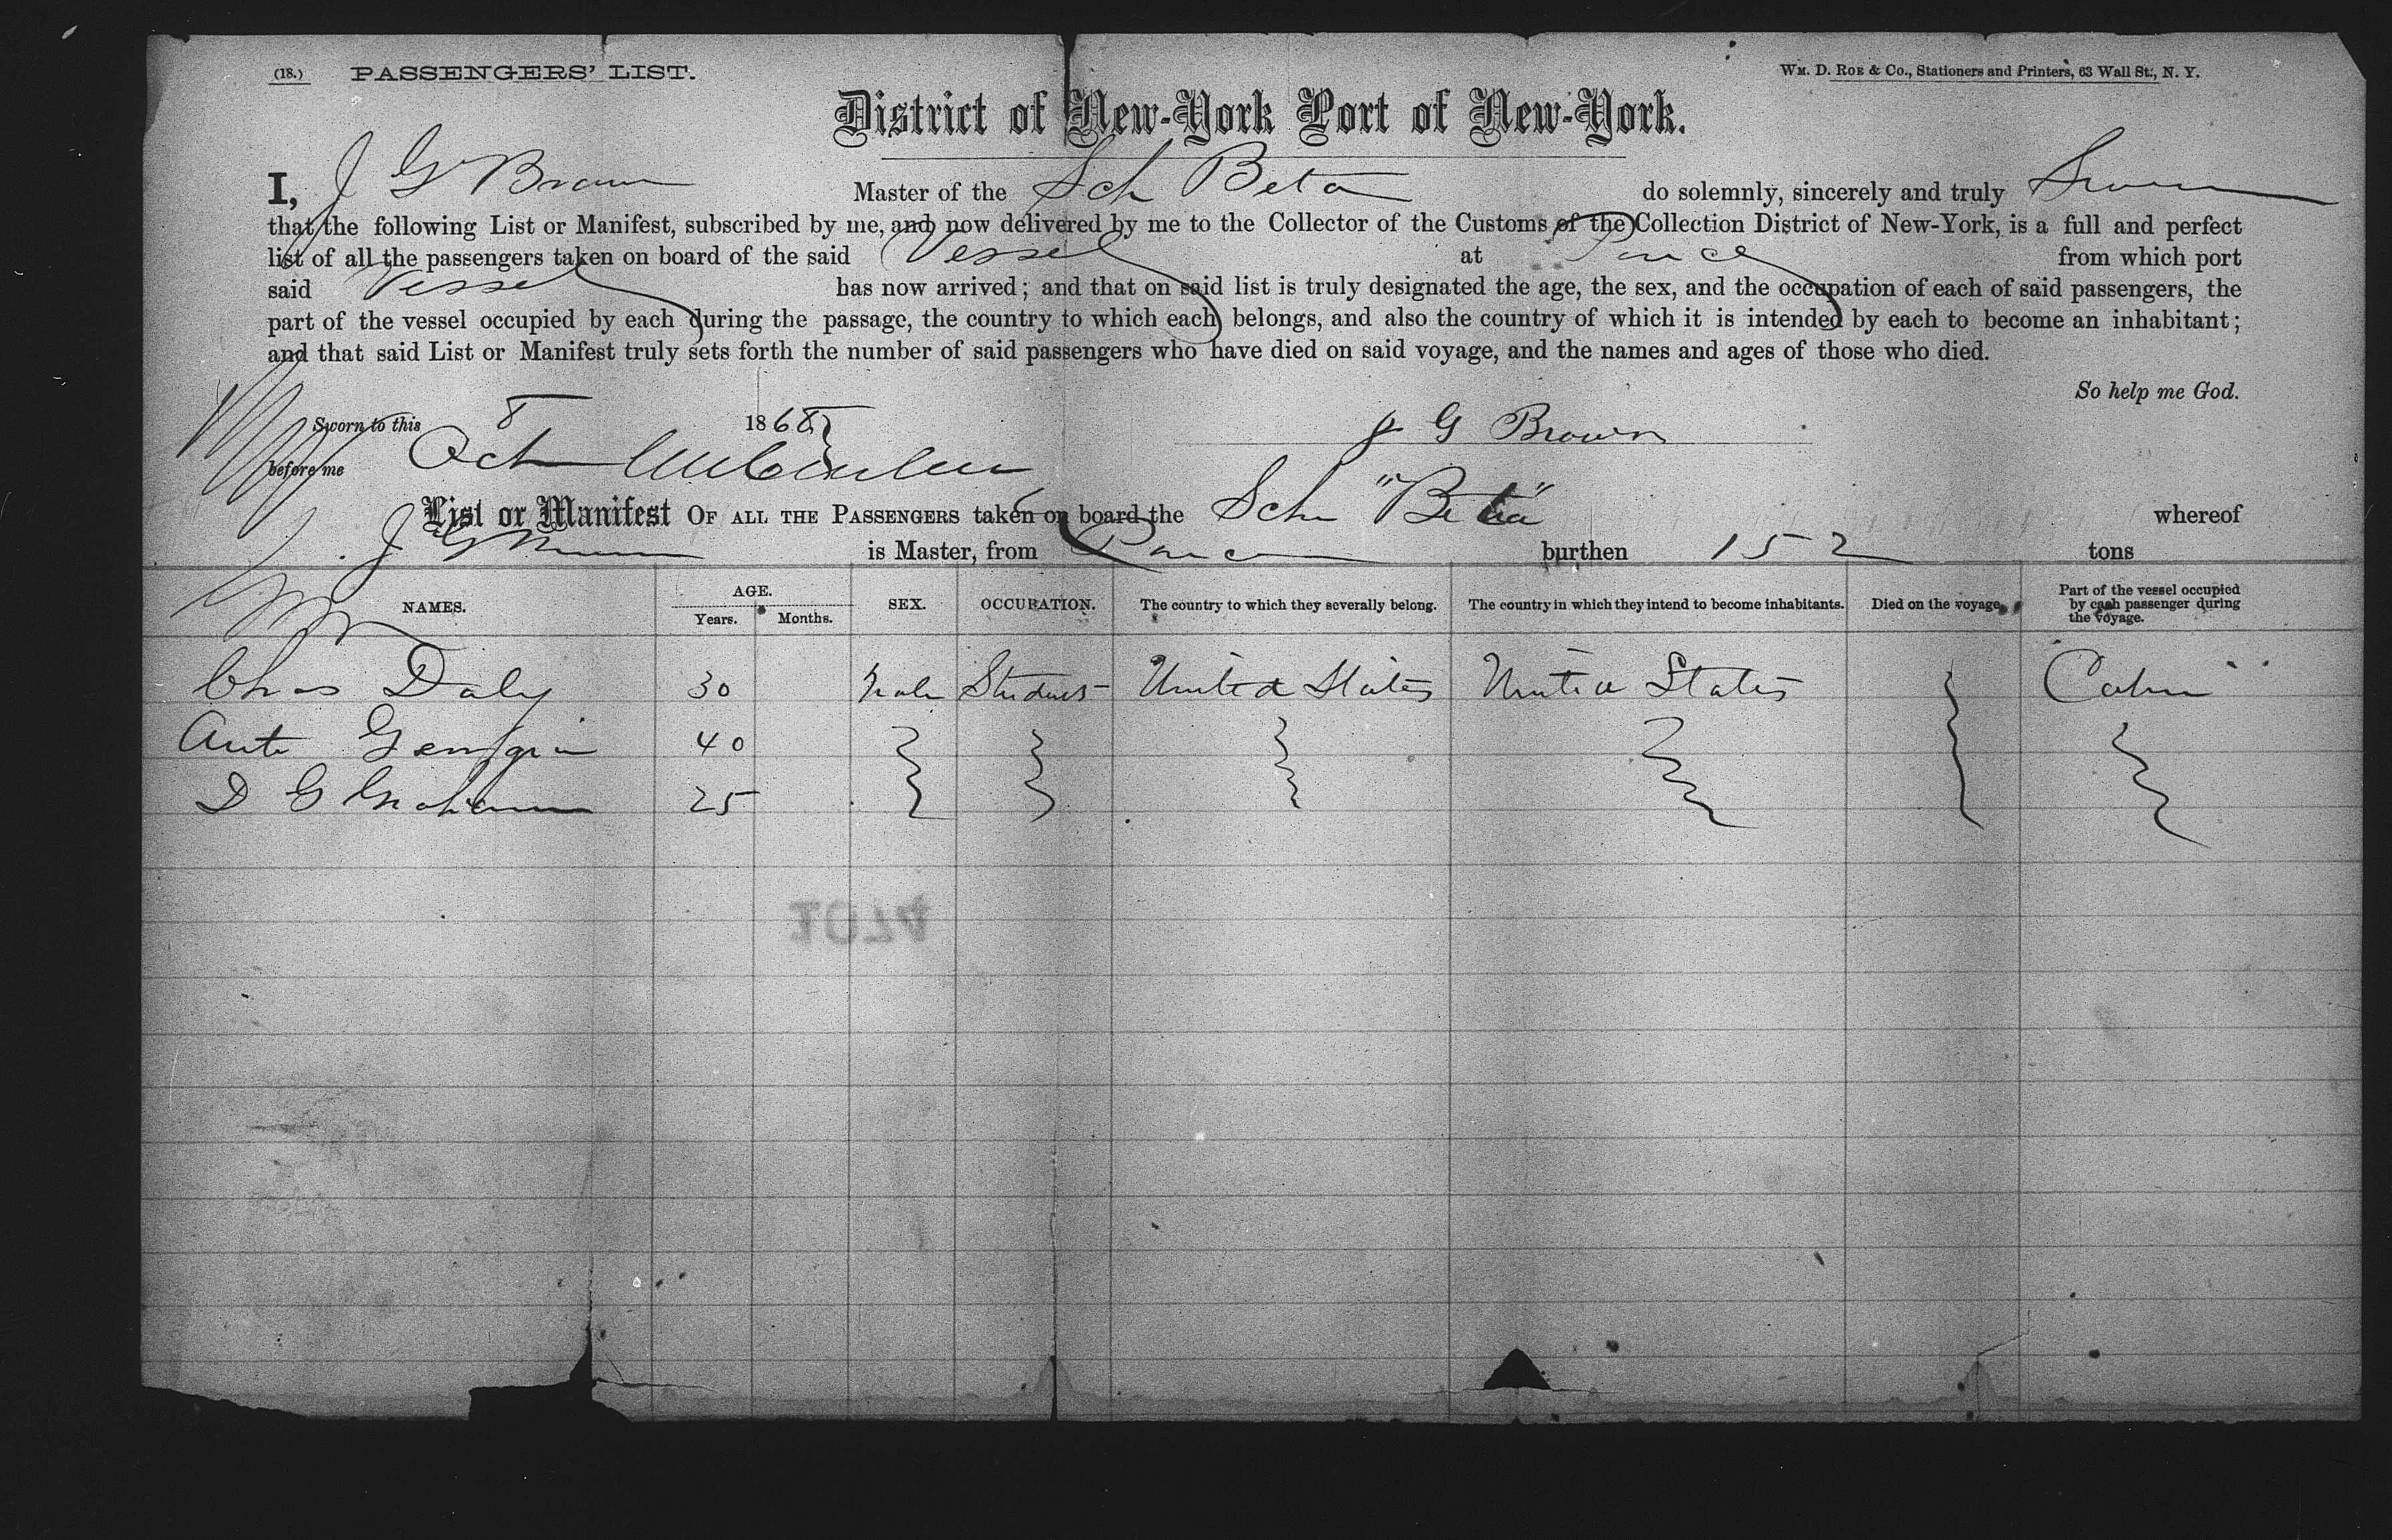 (18.) PASSENGERS' LIST. WM. D. ROE & CO., Stationers and Printers, 63 Wall St., N. Y.
District of New-York Port of New-York.
I, J G Brown Master of the Sch Beta do solemnly, sincerely and truly Swear
that the following List or Manifest, subscribed by me, and now delivered by me to the Collector of the Customs of the Collection District of New-York, is a full and perfect
list of all the passengers taken on board of the said Vessel at Ponce from which port
said Vessel has now arrived; and that on said list is truly designated the age, the sex, and the occupation of each of said passengers, the
part of the vessel occupied by each during the passage, the country to which each belongs, and also the country of which it is intended by each to become an inhabitant;
and that said List or Manifest truly sets forth the number of said passengers who have died on said voyage, and the names and ages of those who died.
So help me God.
Sworn to this 8 1868 J G Brown
before me Oct
List or Manifest OF ALL THE PASSENGERS taken on board the Sch "Beta" whereof
J G Brown is Master, from Ponce burthen 152 tons
NAMES. AGE. Years. Months. SEX. OCCUPATION. The country to which they severally belong. The country in which they intend to become inhabitants. Died on the voyage. Part of the vessel occupied by each passenger during the voyage.
Chas Daly 30 Male United States United States Cabin
40
D G Graham 25
1074